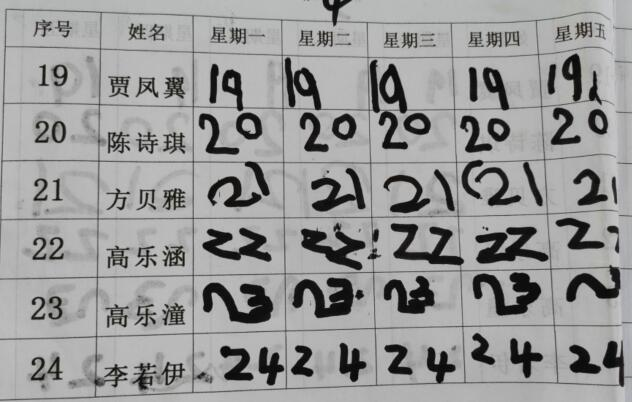 序号 姓名 星期一 星期二 星期三 星期四 星期五
19 贾凤翼 19 19 19 19 19
20 陈诗琪 20 20 20 20 20
21 方贝雅 21 21 21 21 21
22 高乐涵 22 22 22 22 22
23 高乐潼 23 23 23 23
24 李若伊 24 24 24 24 24